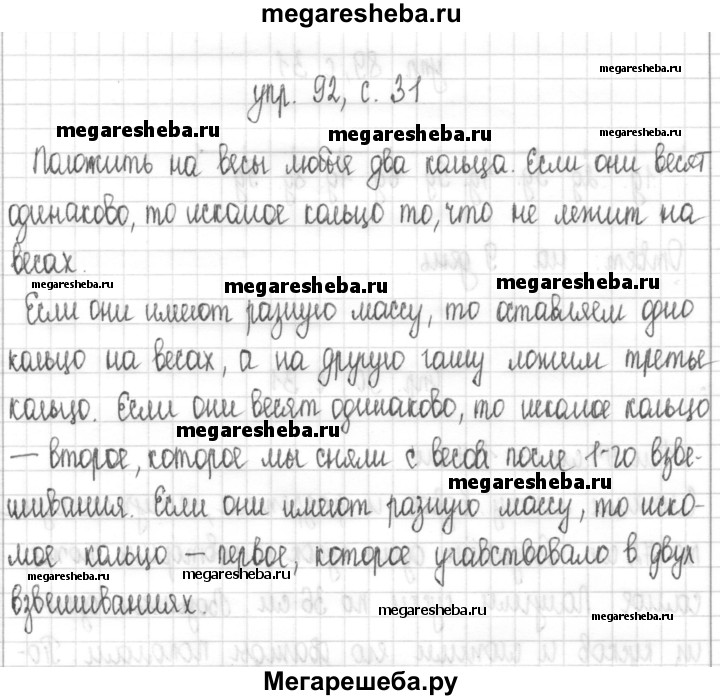 megaresheba.ru
megaresheba.ru
упр. 92, с. 31
megaresheba.ru
megaresheba.ru
megaresheba.ru
Положить на весы любые два кольца. Если они весят
одинаково, то искомое кольцо то, что не лежит на
весах.
megaresheba.ru
megaresheba.ru
megaresheba.ru
Если они имеют разную массу, то оставляем одно
кольцо на весах, а на другую чашу ложим третье
кольцо. Если они весят одинаково, то искомое кольцо
megaresheba.ru
— второе, которое мы сняли с весов после 1-го взве-
megaresheba.ru
шивания. Если они имеют разную массу, то иско-
мое кольцо — первое, которое учавствовало в двух
megaresheba.ru
megaresheba.ru
взвешиваниях.
megaresheba.ru
megaresheba.ru
Мегарешеба.ру